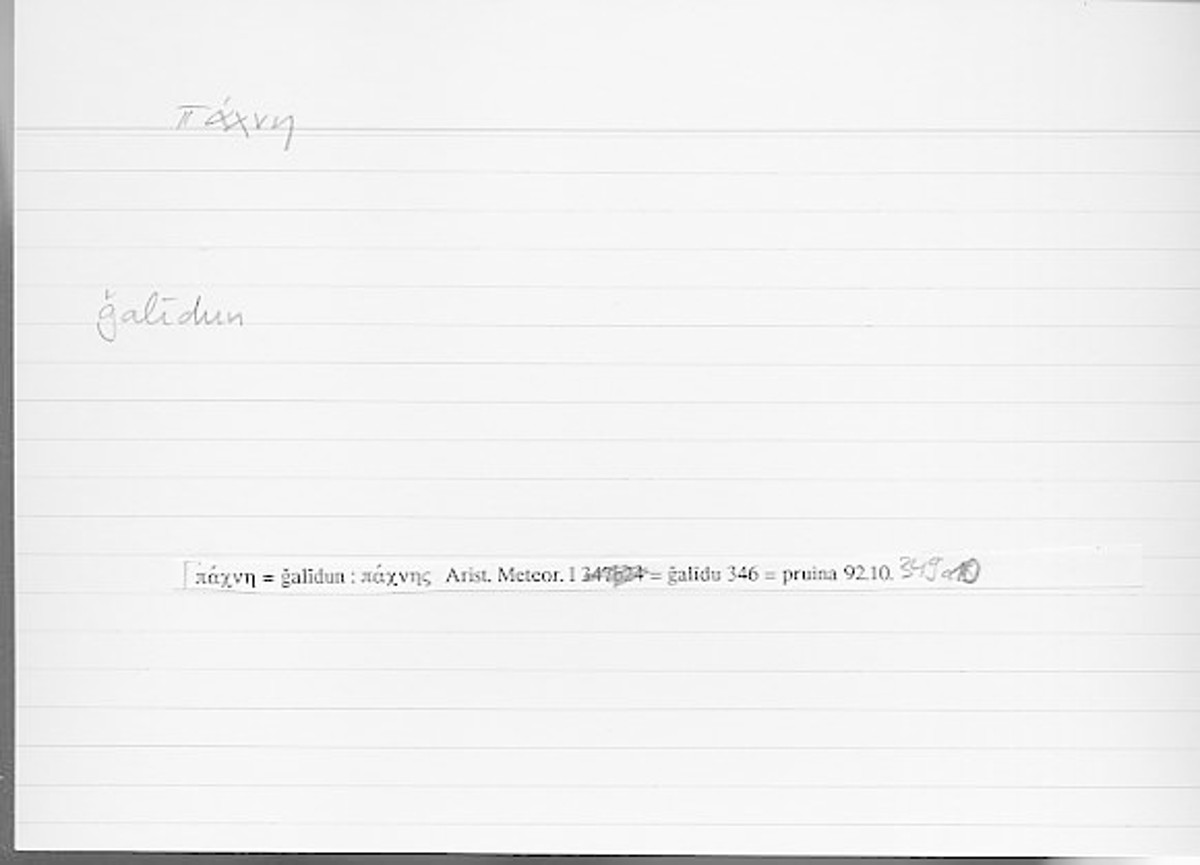 πάχνη
ǧalīdun
πάχνη = ǧalīdun : πάχνης Arist. Meteor. I 347b24 = ǧalīdu 346 = pruina 92.10. 349a10